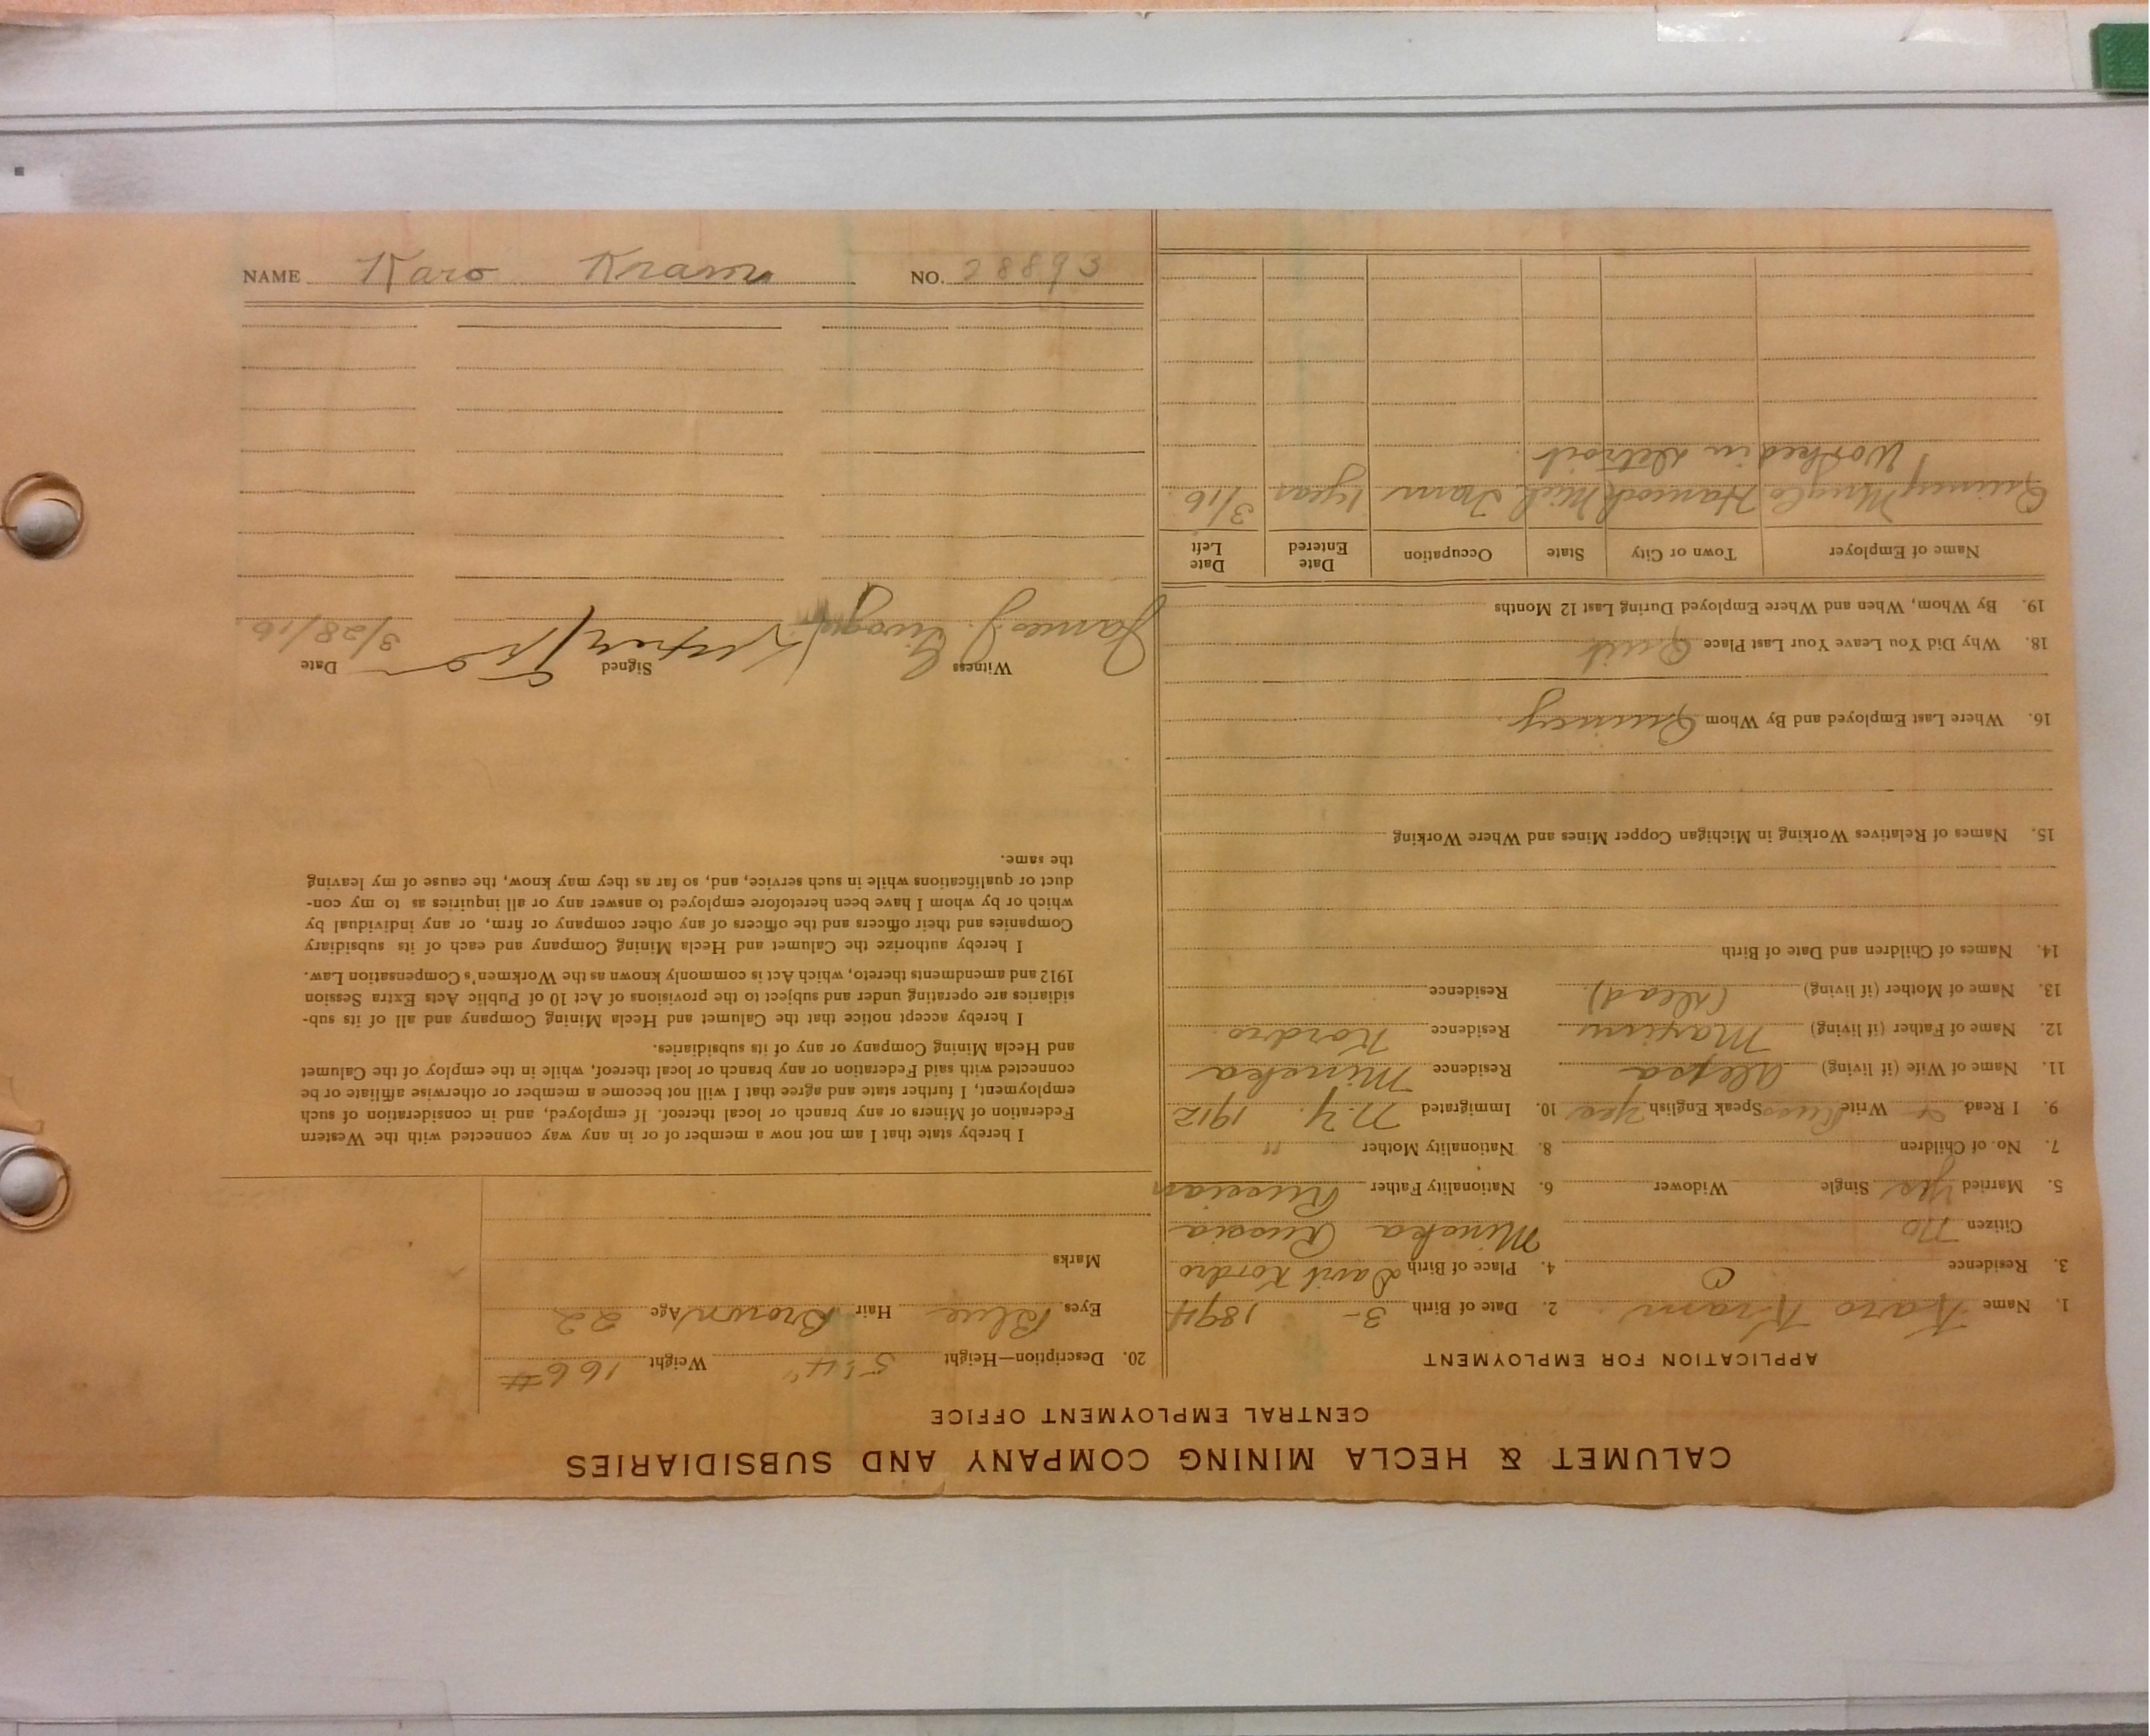 CALUMET & HECLA MINING COMPANY AND SUBSIDIARIES
CENTRAL EMPLOYMENT OFFICE
APPLICATION FOR EMPLOYMENT
1. Name Karo Kram 2. Date of Birth 3- 1894
3. Residence 4. Place of Birth Kordro
Citizen no Minska Russia
5. Married yes Single Widower 6. Nationality Father Russian
7. No. of Children 8. Nationality Mother "
9. I Read & Write Russ Speak English yes 10. Immigrated N.Y. 1912
11. Name of Wife (if living) Residence Minska
12. Name of Father (if living) Maxim Residence Kordro
13. Name of Mother (if living) (dead). Residence
14. Names of Children and Date of Birth
15. Names of Relatives Working in Michigan Copper Mines and Where Working
16. Where Last Employed and By Whom Quincy.
18. Why Did You Leave Your Last Place Quit
19. By Whom, When and Where Employed During Last 12 Months
Name of Employer Town or City State Occupation Date Entered Date Left
Quincy Mng Co Hancock Mich Tram 1 year 3/16
Worked in Detroit.
20. Description—Height 5'4" Weight 166#
Eyes Blue Hair Brown Age 22
Marks
I hereby state that I am not now a member of or in any way connected with the Western
Federation of Miners or any branch or local thereof. If employed, and in consideration of such
employment, I further state and agree that I will not become a member or otherwise affiliate or be
connected with said Federation or any branch or local thereof, while in the employ of the Calumet
and Hecla Mining Company or any of its subsidiaries.
I hereby accept notice that the Calumet and Hecla Mining Company and all of its sub-
sidiaries are operating under and subject to the provisions of Act 10 of Public Acts Extra Session
1912 and amendments thereto, which Act is commonly known as the Workmen's Compensation Law.
I hereby authorize the Calumet and Hecla Mining Company and each of its subsidiary
Companies and their officers and the officers of any other company or firm, or any individual by
which or by whom I have been heretofore employed to answer any or all inquiries as to my con-
duct or qualifications while in such service, and, so far as they may know, the cause of my leaving
the same.
Witness Signed Date
James J. 3/28/16.
NAME Karo Kram NO. 28893